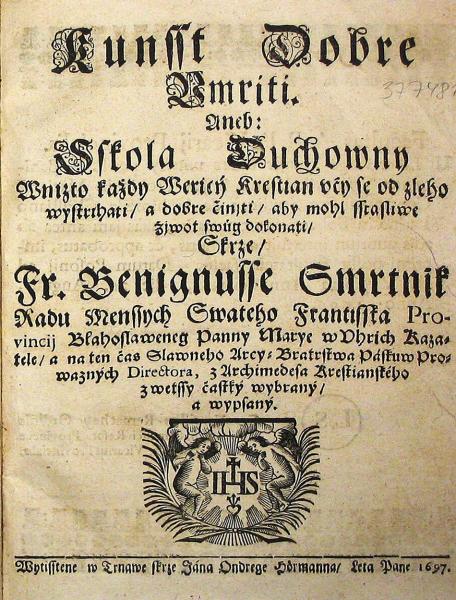 Kunsst Dobre
Vmriti.
377487
Aneb:
Sskola Duchowny
Wnizto každy Wericy Krestian včy se od zleho
wystrihati / a dobre činiti / aby mohl sstastliwe
žiwot swůg dokonati /
Skrze /
Fr. Benignusse Smrtnik
Radu Menssych Swateho Frantisska Pro-
vincij Blahoslaweneg Panny Marye w Vhrich Kaza-
tele / a na ten čas Slawneho Arcy-Bratrstwa Páskuw Pro-
wazných Directora, z Archimedesa Krestianského
z wetssy častky wybraný /
a wypsaný.
IHS
Wytisstene w Trnawe skrze Jána Ondrege Hörmanna / Leta Pane 1697.